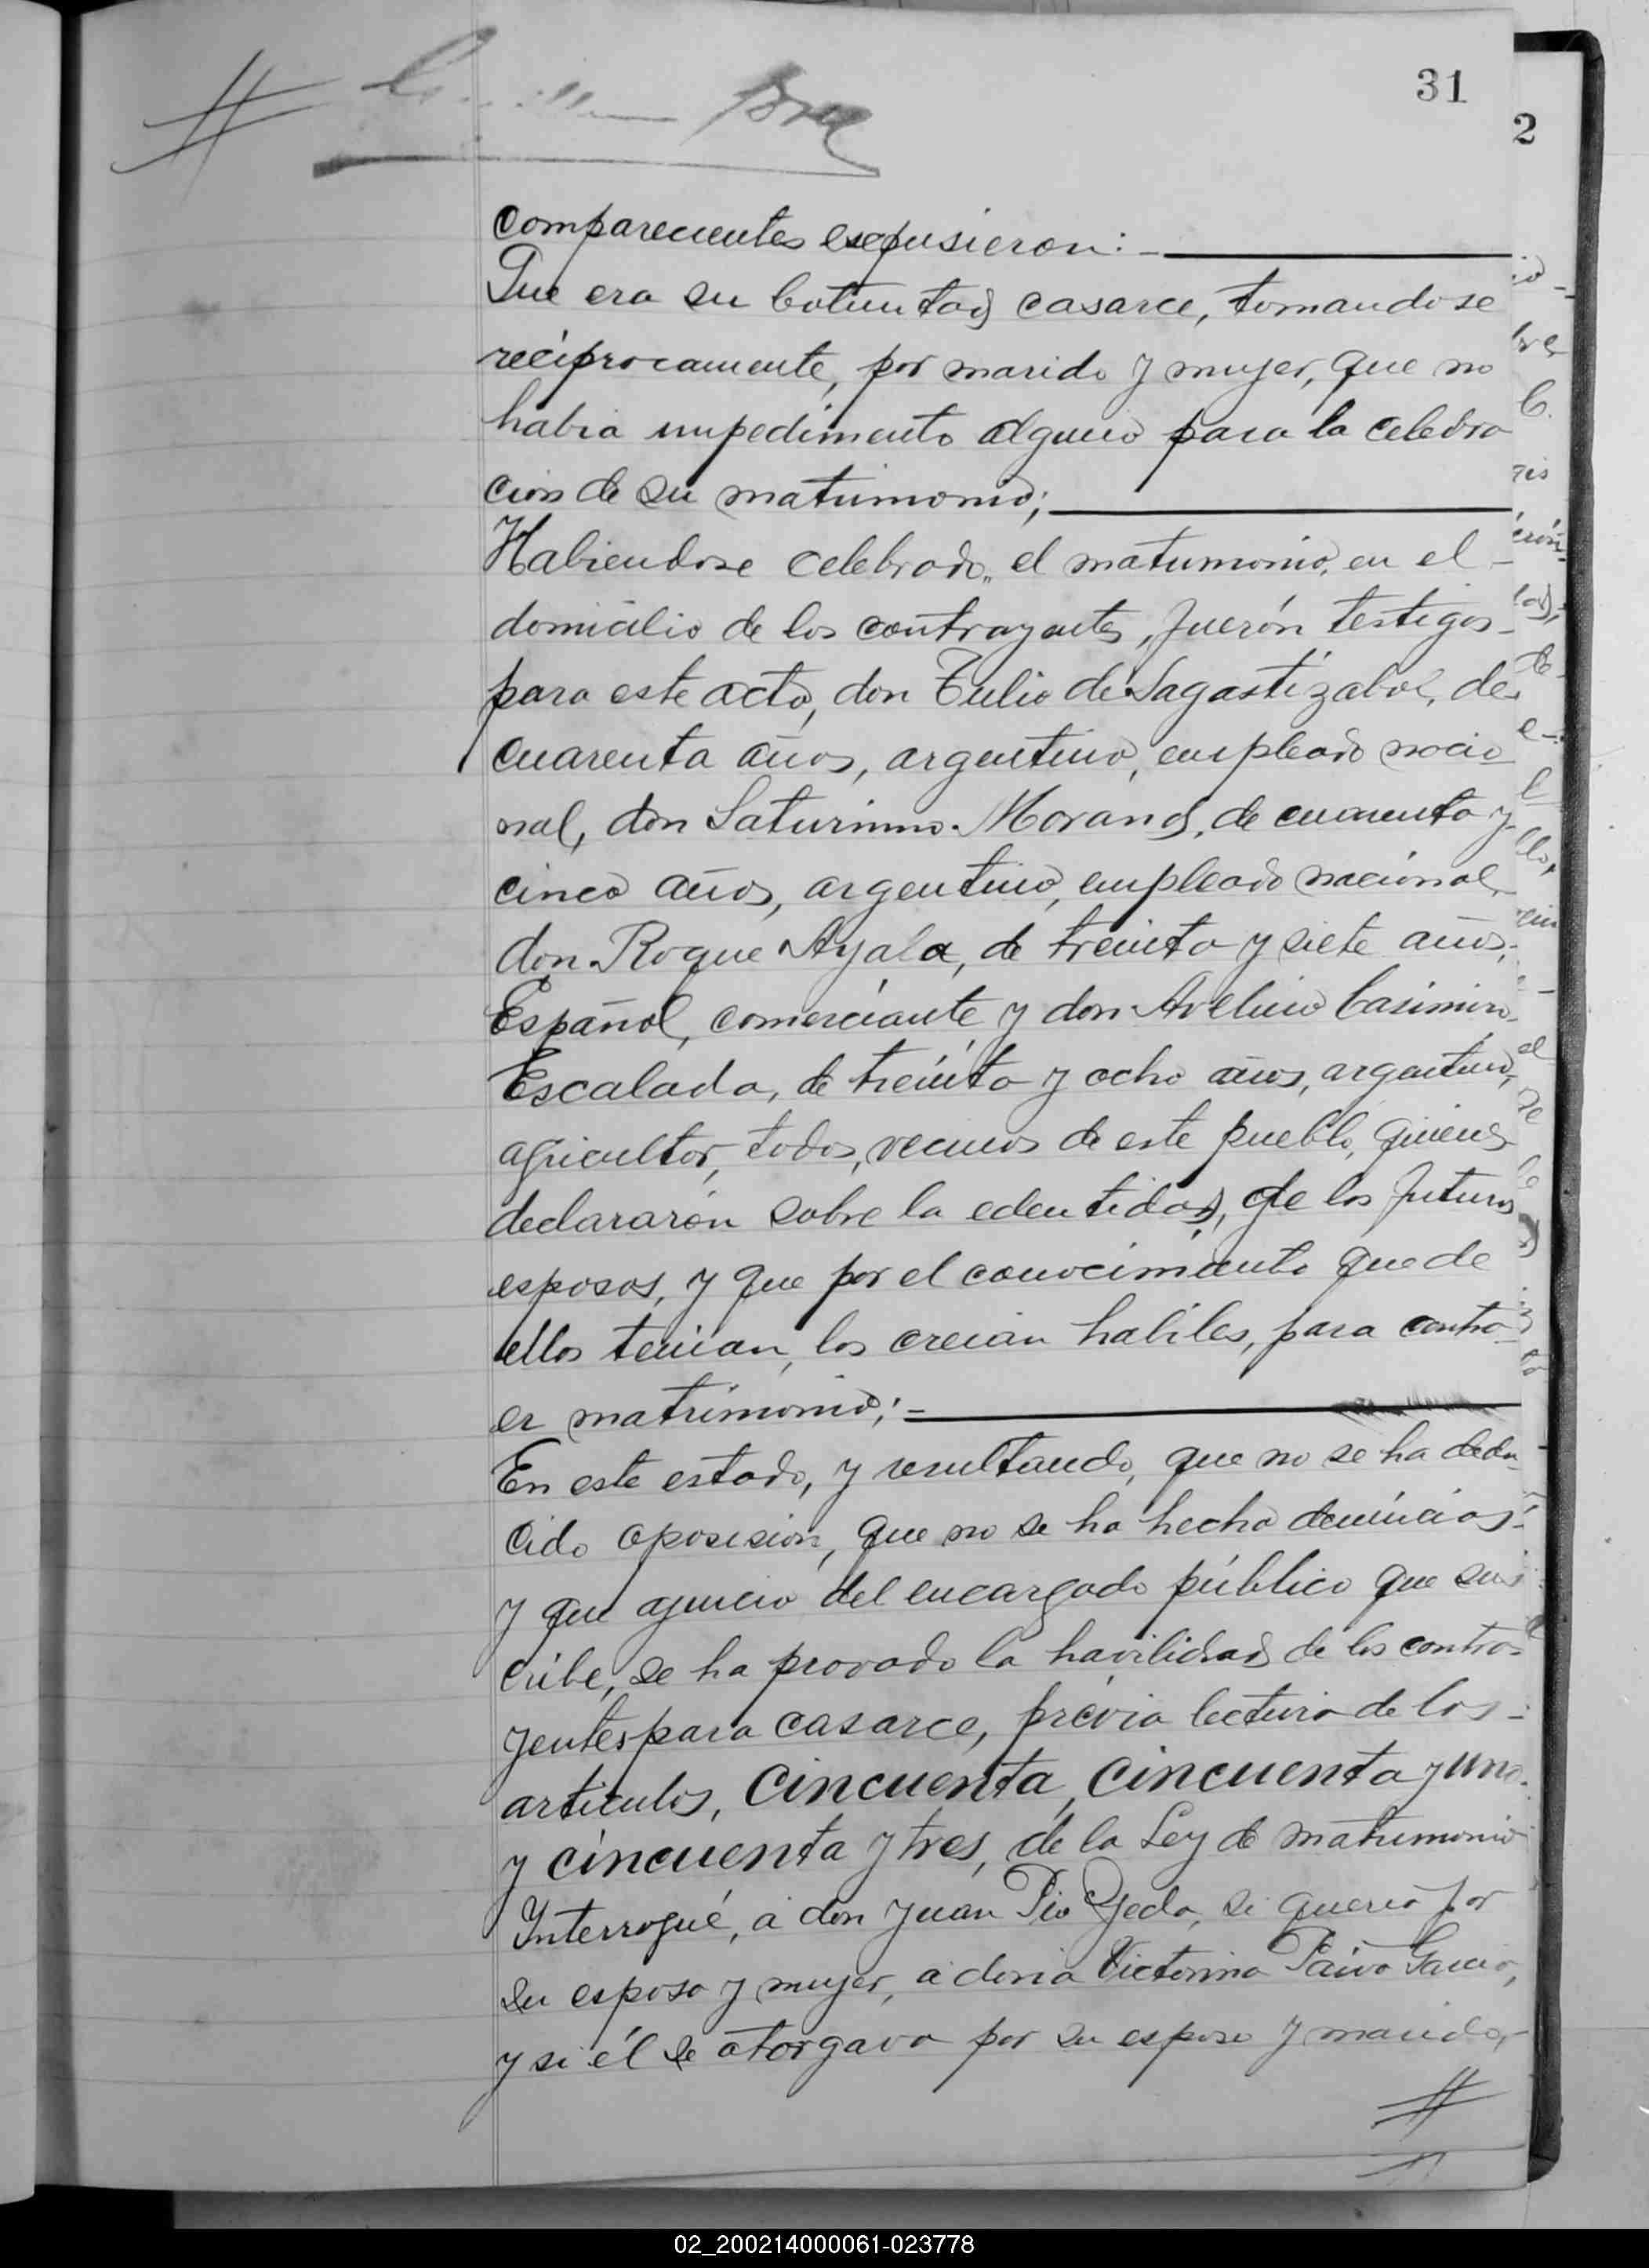 31
2
comparecientes expusieron:
Que era su botuntad casarce, tomandose
reciprocamente, por marido y mujer, que no
habia impedimento alguno para la celebra
cion de su matrimonio;
Habiendose celebrado, el matrimonio, en el
domicilio de los contrayentes, fuerón testigos
para este acto, don Tulio de Sagastizabal, de
cuarenta años, argentino, empleado nacio
nal, don Saturnino Morand, de cuarenta y
cinco años, argentino, empleado nacional,
don Roque Ayala, de treinta y siete años,
Español, comerciante, y don Avelino Casimiro
Escalada, de treinta y ocho años, argentino,
agricultor, todos, vecinos de este pueblo, quienes
declararón sobre la edentidad, de los futuros
esposos, y que por el conocimiento que de
ellos tenian, los creian habiles, para contra
er matrimonio;
En este estado, y resultando, que no se ha dedu
cido oposision, que no se ha hecho denuncias
y que ajuicio del encargado público que sus
cribe, se ha provado la havilidad de los contra
yentes para casarce, prévia lectura de los
articulos, cincuenta, cincuenta y uno
y cincuenta y tres, de la Ley de matrimonio
Interrogué, á don Juan Pio Ojeda, si queria por
su esposa y mujer, a doña Victorina Paiva Garcia,
y si él se otorgava por su esposo y marido,
02_200214000061-023778